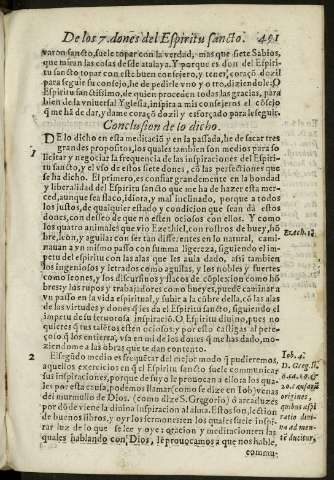 De los 7. dones del Espiritu sancto. 491
varon sancto, suele topar con la verdad, mas que siete Sabios,
que miran las cosas desde atalaya. Y porque es don del Espiri
tu sancto topar con este buen consejero, y tener coraçõ docil
para seguir su consejo, he de pedirle vno y otro, diziendole: O
Espiritu sanctissimo, de quien proceden todas las gracias, para
bien de la vniuersal Yglesia, inspira a mis consejeros el cõsejo
q̃ me hã de dar, y dame coraçõ docil y esforçado para seguirle.
Conclusion de lo dicho.
DE lo dicho en esta meditaciõ y en la passada, he de sacar tres
grandes propositos, los quales tambien son medios para so
1
licitar y negociar la frequencia de las inspiraciones del Espiri-
tu sancto, y el vso de estos siete dones, cõ las perfectiones que
se ha dicho. El primero, es confiar grandemente en la bondad
y liberalidad del Espiritu sancto que me ha de hazer esta mer-
ced, aunque sea flaco, idiota, y mal inclinado, porque a todos
los justos, de qualquier estado y condicion que sean dà estos
dones, con desseo de que no esten ociosos con ellos. Y como
los quatro animales que vio Ezechiel, con rostros de buey, hõ
Ezech. 1.
bre, leon, y aguila, con ser tan differentes en lo natural, cami-
nauan a vn mismo passo con summa ligereza, siguiendo el im
petu del espiritu con las alas que les auia dado, assi tambien
los ingeniosos y letrados como aguilas, y los nobles y fuertes
como leones, y los discursiuos y flacos de cõplexion como hõ
bres, y los rupos y trabajadores como bueyes, puedẽ caminar a
vn passo en la vida espiritual, y subir a la cũbre della, cõ las alas
de las virtudes y dones q̃ les da el Espiritu sancto, siguiendo el
impetu de su feruorosa inspiraciõ. O Espiritu diuino, pues no
quieres que tus talentos esten ociosos, y por esto castigas al pere-
çoso q̃ los entierra, vsa en mi de los dones q̃ me has dado, mo-
uiendome a las obras que te dan contento.
2 El segũdo medio es frequẽtar del mejor modo q̃ pudieremos,
Iob. 4.
aquellos exercicios en q̃ el Espiritu sancto suele communicar
sus inspiraciones, porque de suyo le prouocan a ello
origines,
del murmullo de Dios. (como dize S. Gregorio) ò arcaduzes
por dõde viene la diuina inspiracion al alma. Estos son, lection
de buenos libros, y oyr los sermones: en los quales suele inspi-
rar luz de lo que se lee y oye: oracion y meditacion
quales hablando con Dios, le prouocamos a que nos hable,
commu-